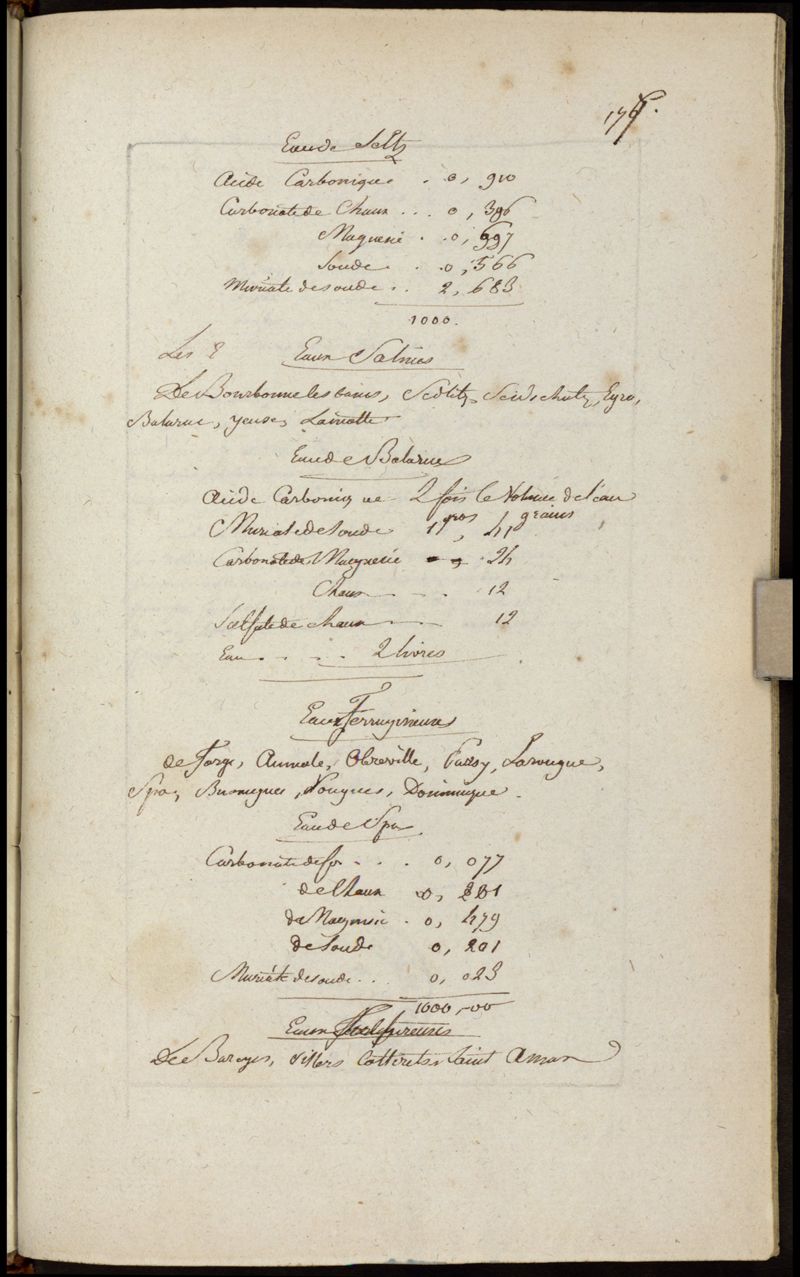 176.
Eau de Seltz
Acide Carbonique . 0, 910
Carbonate de Chaux ... 0, 396
Magnesie . . 0, 697
Soude . . 0, 566
Muriate de soude .. 2, 683
1000.
Les Eaux Salines
De Bourbonne les bains, Sedlitz, Seidschutz, Egra,
Balaruc, yeuse, Lamotte
Eau de Balaruc
Acide Carboniq ue 2 fois le Volume de l'eau
Muriate de soude 1 gros, 41 grains
Carbonate de Magnesie 24
Chaux - - - 12
Sulfate de chaux 12
Eau . . . . 2 livres
Eaux Ferrugineuses
de Forge, Aumale, Passy, Larougue,
Spa, Dominique.
Eau de Spa
Carbonate de fer - . . . 0, 077
de Chaux 0,
de Magnesie . 0, 479
de Soude 0, 201
Muriate de soude . . . 0, 023
1000,-00
Eaux Sulfureuses
De Bareges, Villers Cotterets, Saint Aman